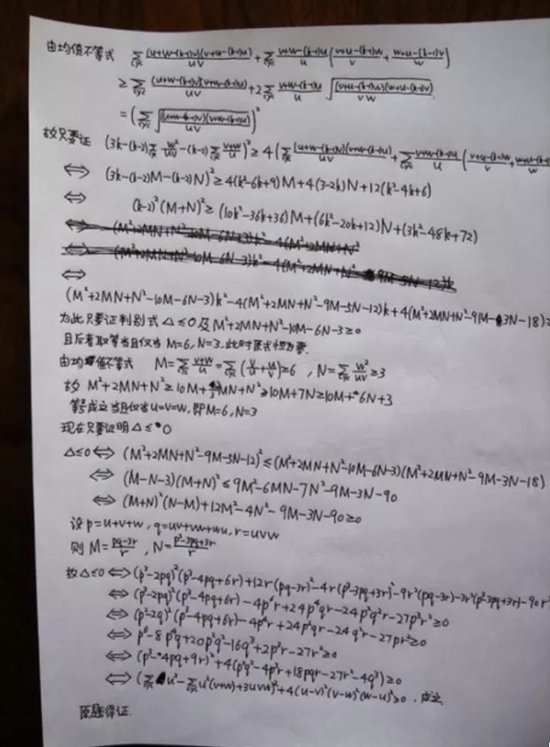 由均值不等式 Σ_cyc (u+w-(k-1)v)(v+w-(k-1)u)/uv + Σ_cyc v+w-(k-1)u/u (v+u-(k-1)w/v + w+u-(k-1)v/w)
≥ Σ_cyc (u+w-(k-1)v)(v+w-(k-1)u)/uv + 2Σ_cyc v+w-(k-1)u/u √((v+u-(k-1)w)(w+u-(k-1)v)/vw)
= (Σ_cyc √((u+w-(k-1)v)(v+w-(k-1)u)/uv))²
故只要证 (3k-(k-2)Σ_cyc w²/uv-(k-2)Σ_cyc v+w/u)² ≥ 4(Σ_cyc (u+w-(k-1)v)(v+w-(k-1)u)/uv + Σ_cyc v+w-(k-1)u/u (v+u-(k-1)w/v + w+u-(k-1)
⇔ (3k-(k-2)M-(k-2)N)² ≥ 4(k²-6k+9)M+4(3-2k)N+12(k²-4k+6)
⇔ (k-2)²(M+N)² ≥ (10k²-36k+36)M+(6k²-20k+12)N+(3k²-48k+72)
⇔
(M²+2MN+N²-10M-6N-3)k²-4(M²+2MN+N²-9M-5N-12)k+4(M²+2MN+N²-9M-3N-18)≥
为此只要证判别式 △≤0 及 M²+2MN+N²-10M-6N-3≥0
且后者取等当且仅当 M=6, N=3, 此时原式
由均值不等式 M=Σ_cyc v+w/u=Σ_cyc(v/u+u/v)≥6, N=Σ_cyc w²/uv≥3
故 M²+2MN+N²≥10M+MN+N²≥10M+7N≥10M+6N+3
等号成立当且仅当u=v=w, 即M=6, N=3
现在只要证明△≤0
△≤0 ⇔ (M²+2MN+N²-9M-5N-12)²≤(M²+2MN+N²-10M-6N-3)(M²+2MN+N²-9M-3N-18)
⇔ (M-N-3)(M+N)²≤9M²-6MN-7N²-9M-3N-90
⇔ (M+N)²(N-M)+12M²-4N²-9M-3N-90≥0
设 p=u+v+w, q=uv+vw+wu, r=uvw
则 M=pq-3r/r, N=p³-3pq+3r/r
故△≤0 ⇔ (p³-2pq)²(p³-4pq+6r)+12r(pq-3r)²-4r(p³-3pq+3r)²-9r²(pq-3r)-3r²(p³-3pq+3r)-90r
⇔ (p³-2pq)²(p³-4pq+6r)-4p⁶r+24p⁴qr-24p²q²r-27p³r²≥0
⇔ (p²-2q)²(p³-4pq+6r)-4p⁴r+24p²qr-24q²r-27pr²≥0
⇔ p⁶-8p⁴q+20p²q²-16q³+2p³r-27r²≥0
⇔ (p³-4pq+9r)²+4(p²q²-4p³r+18pqr-27r²-4q³)≥0
⇔ (Σ_cyc u³-Σ_cyc u²(v+w)+3uvw)²+4(u-v)²(v-w)²(w-u)²≥0. 成立
原题得证.